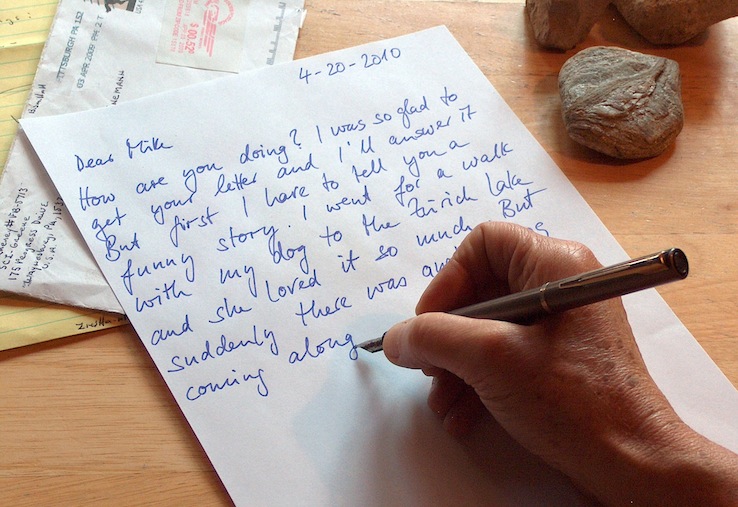 4-20-2010
Dear Mike
How are you doing? I was so glad to
get your letter and I'll answer it
But first I have to tell you a
funny story. I went for a walk
with my dog to the Zürich Lake
and she loved it so much. But
suddenly there was
coming along
PITTSBURGH PA 152
03 APR 2009 PM 2 T
175 Progress Drive
U.S.A.